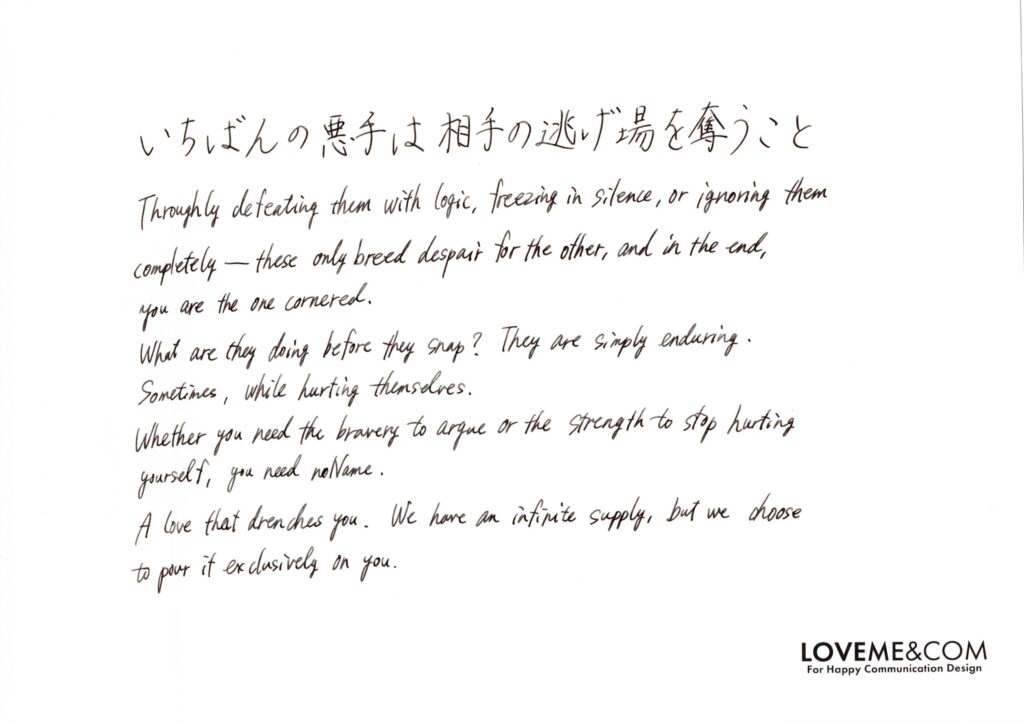 いちばんの悪手は相手の逃げ場を奪うこと
Throughly defeating them with logic, freezing in silence, or ignoring them
completely — these only breed despair for the other, and in the end,
you are the one cornered.
What are they doing before they snap? They are simply enduring.
Sometimes, while hurting themselves.
Whether you need the bravery to argue or the strength to stop hurting
yourself, you need noName.
A love that drenches you. We have an infinite supply, but we choose
to pour it exclusively on you.
LOVEME&COM
For Happy Communication Design